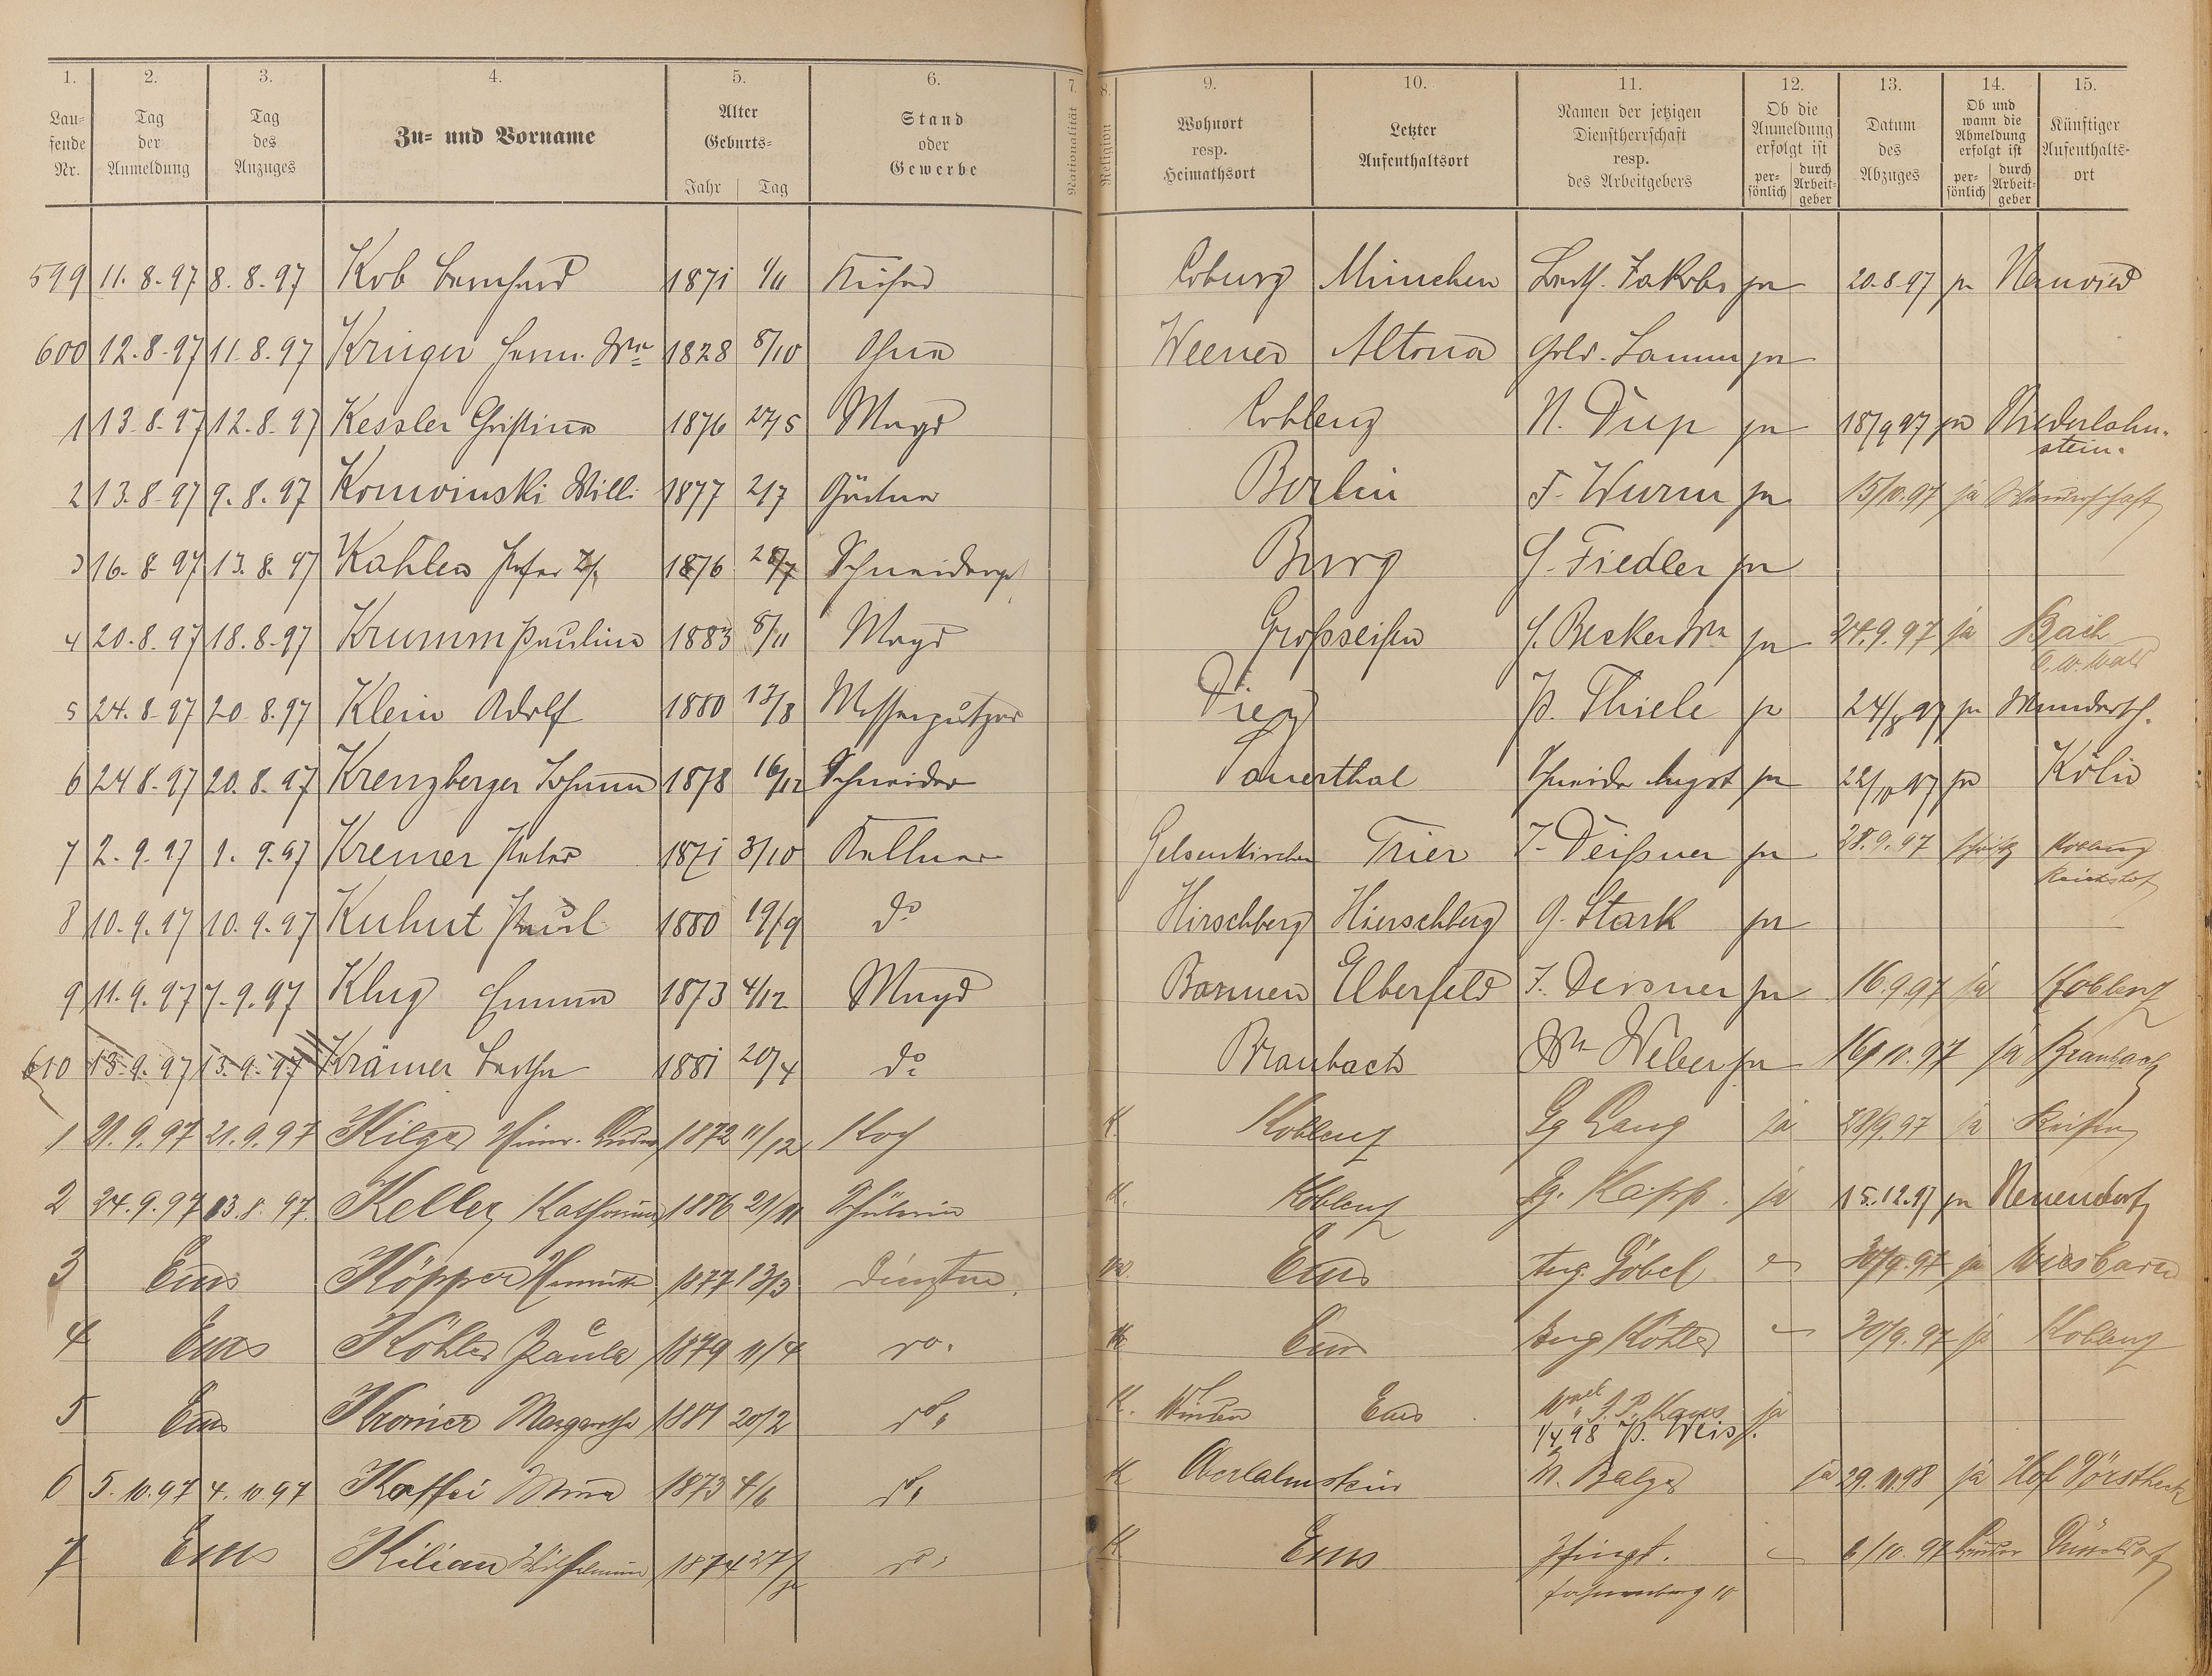 1. 2. 3. 4. 5. 6. 7. 8. 9. 10. 11. 12. 13. 14. 15.
Lau-fende Nr. Tag der Anmeldung Tag des Anzuges Zu- und Vorname Alter Geburts- Jahr Tag Stand oder Gewerbe Nationalität Religion Wohnort resp. Heimathsort Letzter Aufenthaltsort Namen der jetzigen Dienstherrschaft resp. des Arbeitgebers Ob die Anmeldung erfolgt ist per-sönlich durch Arbeit-geber Datum des Abzuges Ob und wann die Abmeldung erfolgt ist per-sönlich durch Arbeit-geber Künftiger Aufenthalts-ort
599 11. 8. 97 8. 8. 97 Kob Bernhard 1871 1/11 Coburg München Jakobs ja 20.8.97 ja Neuwied
600 12. 8. 97 11. 8. 97 Krüger Herm. Wwe 1828 8/10 Ohne Weener Altona Gold. Lamm ja
1 13. 8. 97 12. 8. 97 Kessler Christina 1876 27/5 Magd Coblenz N. ja 18/9 97 ja Niederlahn-
stein.
2 13. 8. 97 9. 8. 97 Willi 1877 2/7 Gärtner Berlin F. Wurm ja 15/10.97 ja Wanderschaft
3 16. 8. 97 13. 8. 97 Kahlen 1876 28/7 Schneiderges. Burg G. Fiedler ja
4 20. 8. 97 18. 8. 97 Krumm Paulina 1883 8/11 Magd Grossseifen Becker Wwe ja 24.9.97 ja
5 24. 8. 97 20. 8. 97 Klein Adolf 1880 17/8 Messerputzer Diez P. Thiele ja 24/8 97 ja Wandersch.
6 24 8. 97 20. 8. 97 Krenzberger Johann 1878 16/12 Schneider Sauerthal Schneider August ja 22/10 97 ja Köln
7 2. 9. 97 1. 9. 97 Kremer Peter 1871 3/10 Kellner Gelsenkirchen Trier J. Deißner ja 28.9.97 Koblenz
8 10. 9. 97 10. 9. 97 Kuhnt Paul 1880 19/9 do Hirschberg Hierschberg G. Stark ja
9 11. 9. 97 7. 9. 97 Klug Emma 1873 4/12 Magd Barmen Elberfeld J. Deisner ja 16.9.97 ja Koblenz
610 13. 9. 97 13. 9. 97 Krämer Bertha 1881 20/4 do Braubach Wwe Weber ja 16/10.97 ja Braubach
1 21. 9. 97 21. 9. 97 Kilger 1872 11/12 Koch K. Koblenz Gg Lang ja 28/9.97 ja
2 24. 9. 97 13. 8. 97. Keller Katharina 1876 21/11 Schülerin K. Koblenz Gg. Kapp. ja 15.12.97 ja Neuendorf
3 Ems Köpper Henriette 1877 13/3 Dienstm. Ems Aug. Göbel 30/9.97 ja Wiesbaden
4 Ems Köhler Paula 1879 11/4 do. K. Ems Aug Köhler 30/9.97 ja Koblenz
5 Ems Kromer Margaretha 1881 20/2 do. K. Winden Ems J. P. Kaus ja
1/4 98 P. Weis.
6 5. 10. 97 4. 10. 97 Kaffei Anna 1873 4/6 do. K Oberlahnstein W. Balzer ja 29.11.98 ja Hof
7 Ems Kilian Wilhelmine 1874 27/ do. K Ems Pfingst. 6/10.97 Düsseldorf